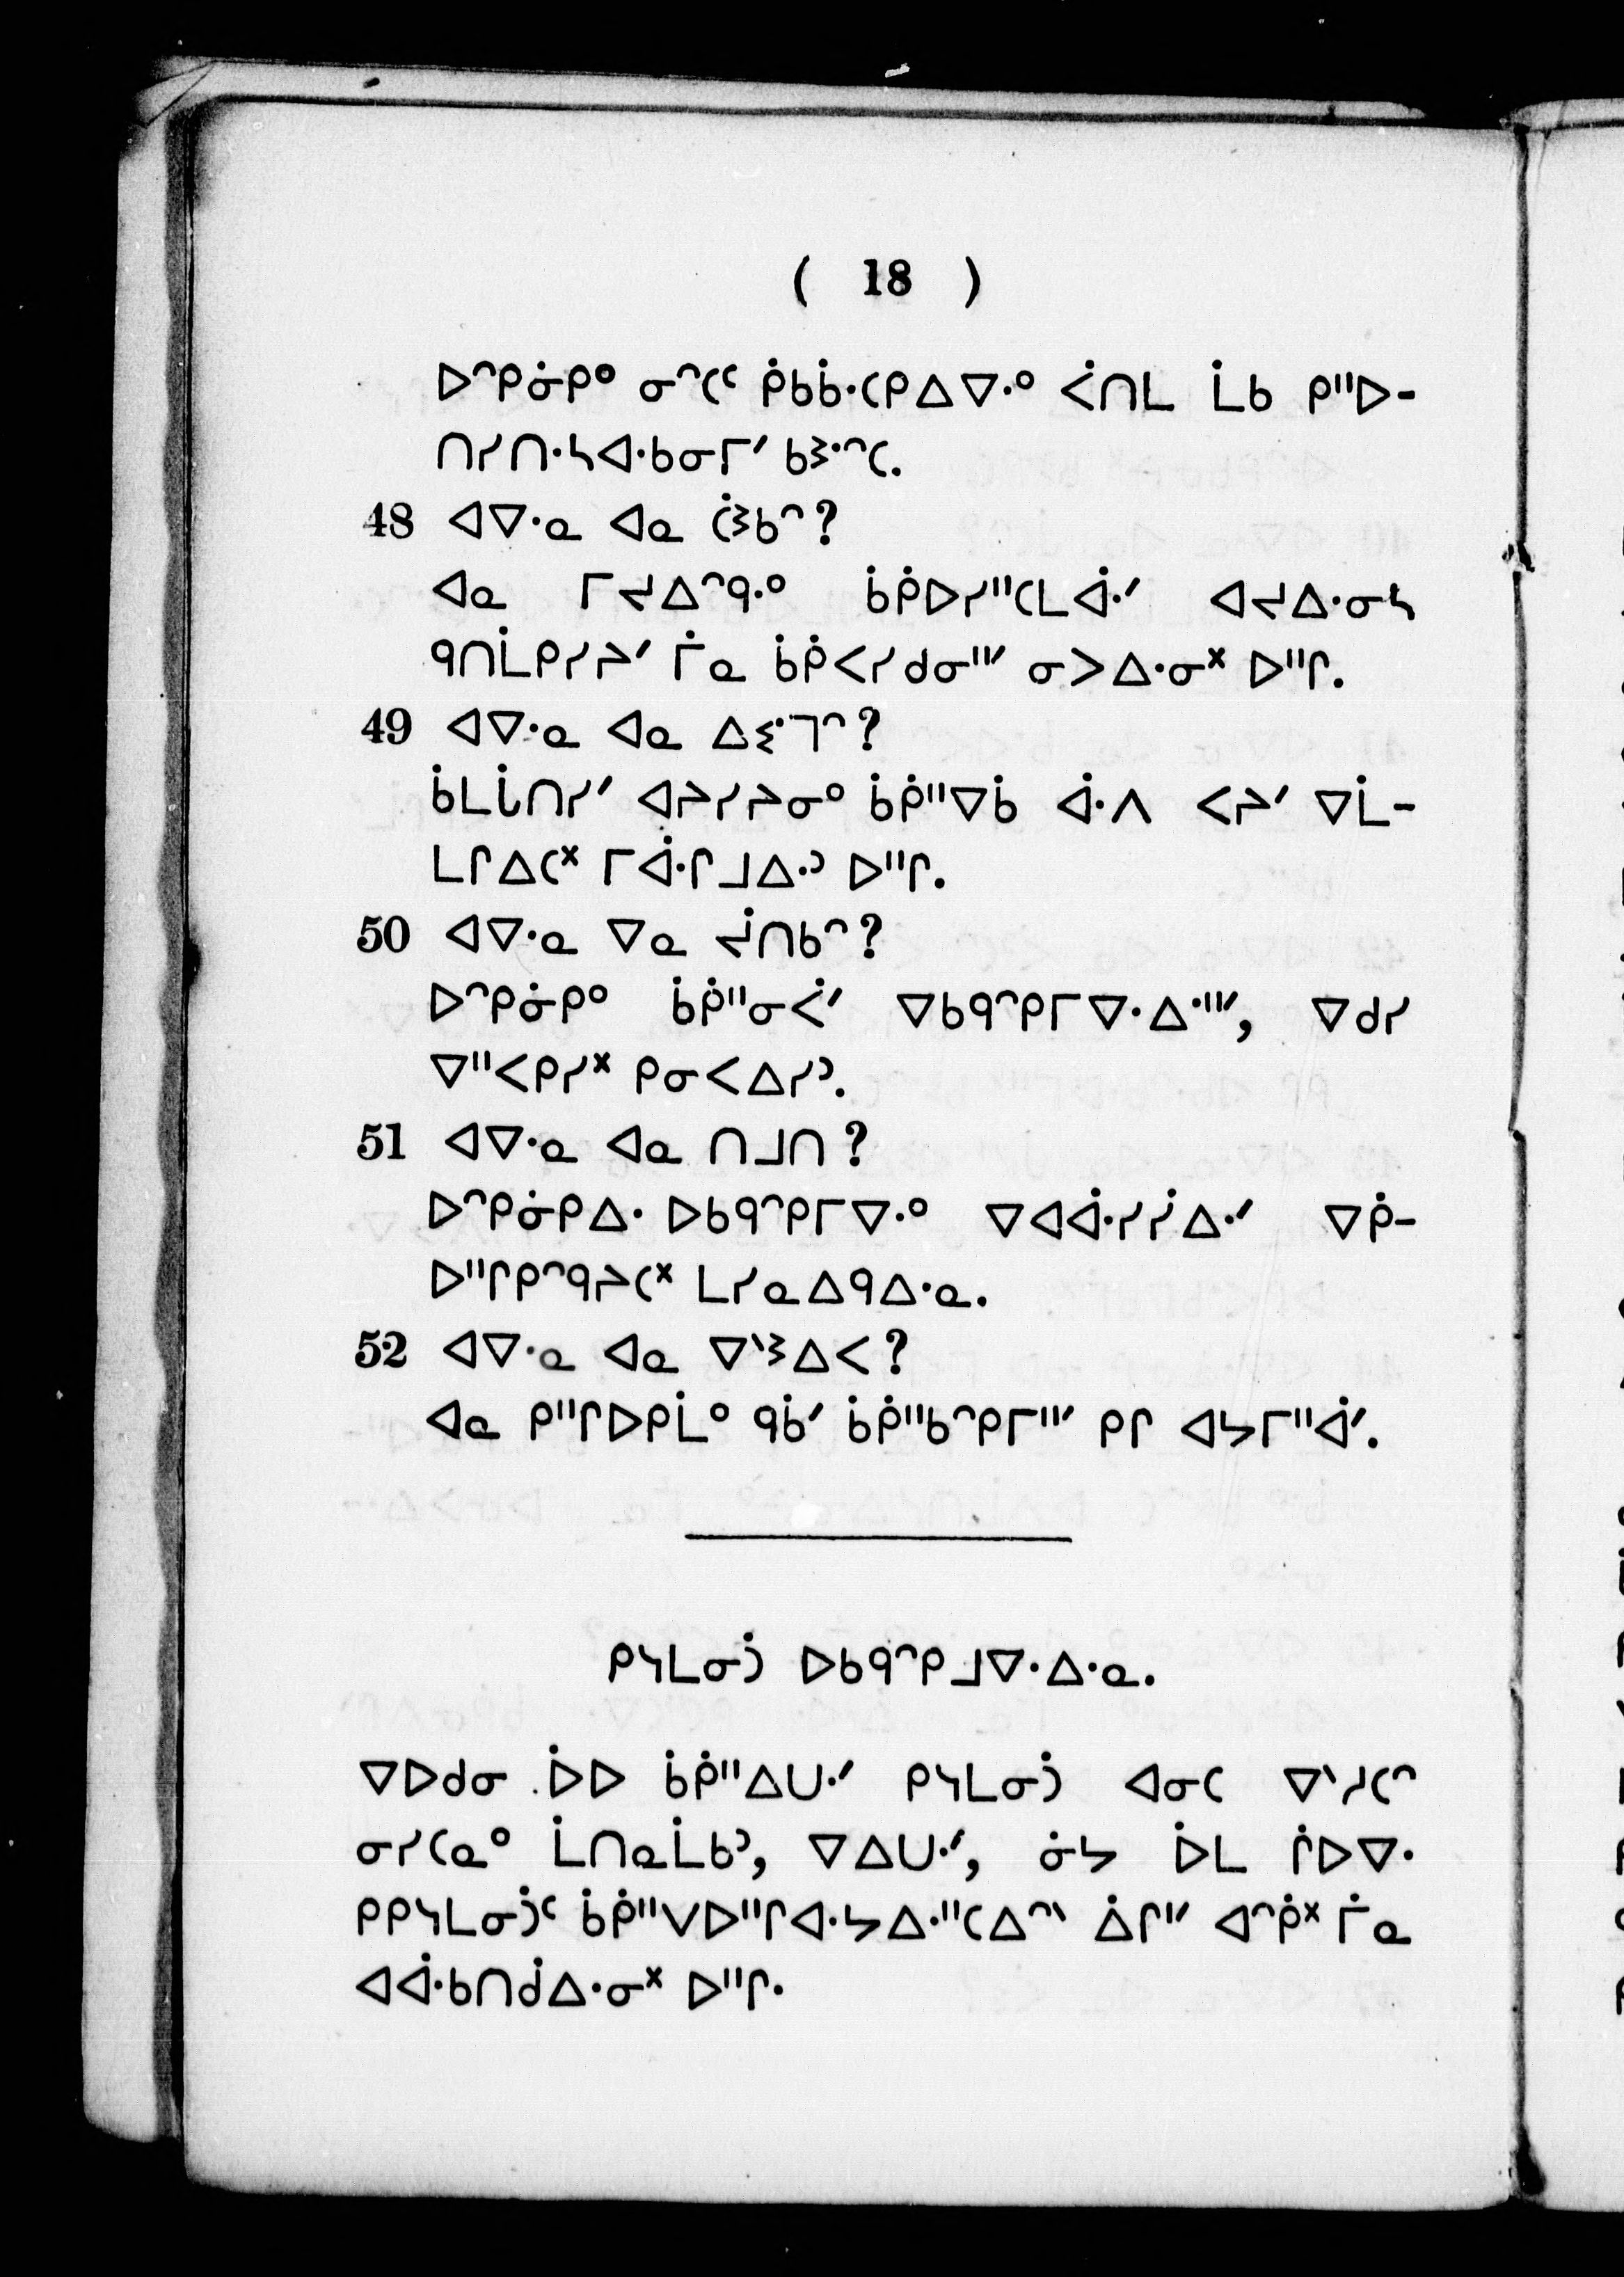 ( 18 )
ᐅᐢᑭᓃᑭᐤ ᓂᐢᑕᑦ ᑮᑲᑳᐧᑕᑭᐃᐁᐧᐤ ᐹᑎᒪ ᒫᑲ ᑭᐦᐅ-
ᑎᓯᑎᐧᓴᐊᐧᑲᓂᒥᐟ ᑲᕒᐧᐢᑕ.
48 ᐊᐁᐧᓇ ᐊᓇ ᑖᕒᑲᐢ?
ᐊᓇ ᒥᔪᐃᐢᑫᐧᐤ ᑳᑮᐅᓯᐦᑕᒪᐚᐟ ᐊᔪᐃᐧᓂᓴ
ᑫᑎᒫᑭᓯᔨᐟ ᒦᓇ ᑳᑮᐸᓯᑯᓂᐦᐟ ᓂᐳᐃᐧᓂᕽ ᐅᐦᒋ.
49 ᐊᐁᐧᓇ ᐊᓇ ᐃᕃᐧᒣᐢ?
ᑳᒪᒑᑎᓯᐟ ᐊᔨᓯᔨᓂᐤ ᑳᑮᐦᐁᑳ ᐚᐱ ᐸᔨᐟ ᐁᒫ-
ᒪᒋᐃᑕᕽ ᒥᐚᒋᒧᐃᐧᐣ ᐅᐦᒋ.
50 ᐊᐁᐧᓇ ᐁᓇ ᔫᑎᑲᐢ?
ᐅᐢᑭᓃᑭᐤ ᑳᑮᐦᓂᐹᐟ ᐁᑲᑫᐢᑭᒥᐁᐧᐃᐧᐦᐟ, ᐁᑯᓯ
ᐁᐦᐸᑭᓯᕽ ᑭᓂᐸᐃᓯᐣ.
51 ᐊᐁᐧᓇ ᐊᓇ ᑎᒧᑎ?
ᐅᐢᑭᓃᑭᐃᐧ ᐅᑲᑫᐢᑭᒥᐁᐧᐤ ᐁᐊᐚᓯᓰᐃᐧᐟ ᐁᑮ-
ᐅᐦᒋᑭᐢᑫᔨᑕᕽ ᒪᓯᓇᐃᑫᐃᐧᓇ.
52 ᐊᐁᐧᓇ ᐊᓇ ᐁᐠᕒᐃᐸ?
ᐊᓇ ᑭᐦᒋᐅᑭᒫᐤ ᑫᑳᐟ ᑳᑮᐦᑲᐢᑭᒥᐦᐟ ᑭᒋ ᐊᔭᒥᐦᐋᐟ.
ᑭᓴᒪᓂᑑ ᐅᑲᑫᐢᑭᒧᐁᐧᐃᐧᓇ.
ᐁᐅᑯᓂ ᐆᐅ ᑳᑮᐦᐃᑌᐧᐟ ᑭᓴᒪᓂᑑ ᐊᓂᑕ ᐁᐠᓱᑕᐢ
ᓂᓯᑕᓇᐤ ᒫᑎᓇᒫᑲᐣ, ᐁᐃᑌᐧᐟ, ᓃᔭ ᐆᒪ ᒌᐅᐁᐧ
ᑭᑭᓴᒪᓂᑑᑦ ᑳᑮᐦᐯᐅᐦᒋᐊᐧᔭᐃᐧᐦᑕᐃᐢᐠ ᐄᒋᐦᐟ ᐊᐢᑮᕽ ᒦᓇ
ᐊᐚᑲᑎᑰᐃᐧᓂᕽ ᐅᐦᒋ.